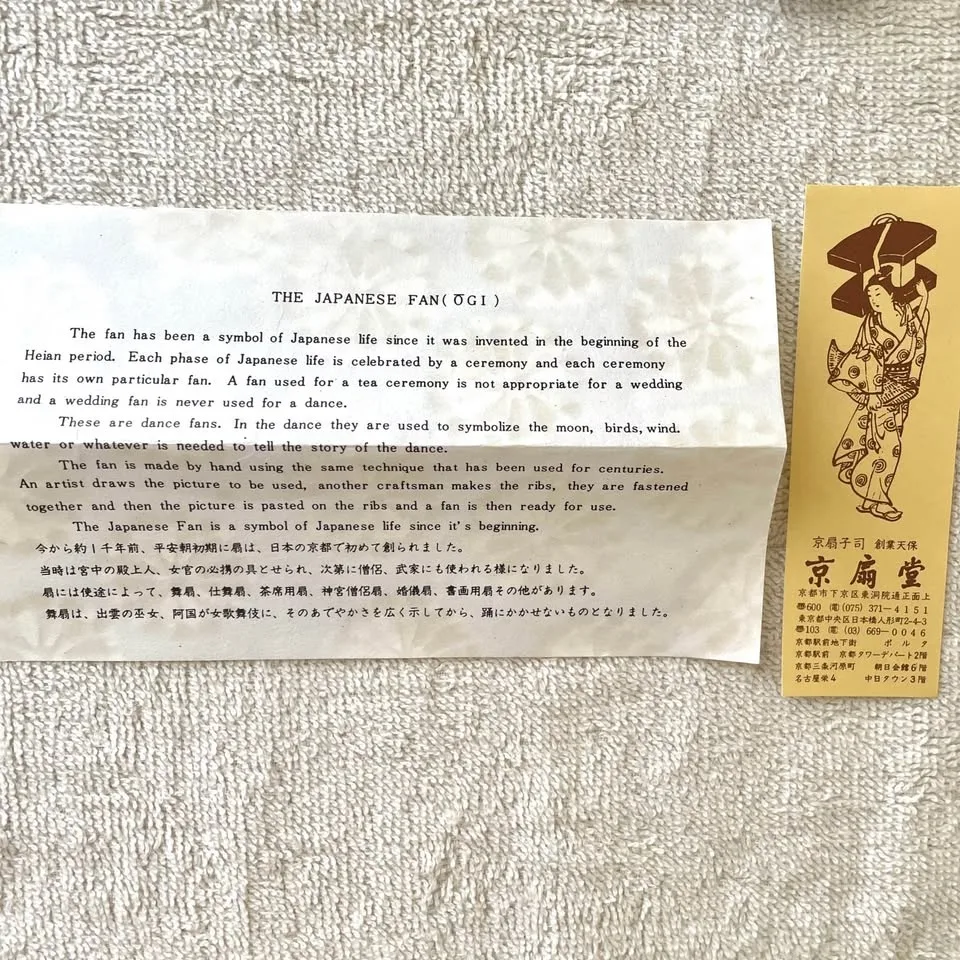 THE JAPANESE FAN(ŌGI)
The fan has been a symbol of Japanese life since it was invented in the beginning of the
Heian period. Each phase of Japanese life is celebrated by a ceremony and each ceremony
has its own particular fan. A fan used for a tea ceremony is not appropriate for a wedding
and a wedding fan is never used for a dance.
These are dance fans. In the dance they are used to symbolize the moon, birds, wind.
water or whatever is needed to tell the story of the dance.
The fan is made by hand using the same technique that has been used for centuries.
An artist draws the picture to be used, another craftsman makes the ribs, they are fastened
together and then the picture is pasted on the ribs and a fan is then ready for use.
The Japanese Fan is a symbol of Japanese life since it's beginning.
今から約1千年前、平安朝初期に扇は、日本の京都で初めて創られました。
当時は宮中の殿上人、女官の必携の具とせられ、次第に僧侶、武家にも使われる様になりました。
扇には使途によって、舞扇、仕舞扇、茶席用扇、神宮僧侶扇、婚儀扇、書画用扇その他があります。
舞扇は、出雲の巫女、阿国が女歌舞伎に、そのあでやかさを広く示してから、踊にかかせないものとなりました。
京扇子司 創業天保
京扇堂
京都市下京区東洞院通正面上
〠600 (電)(075) 371―4151
東京都中央区日本橋人形町2-4-3
〠103 (電) (03) 669―0046
京都駅前地下街 ポルタ
京都駅前 京都タワーデパート2階
京都三条河原町 朝日会館6階
名古屋栄4 中日タウン3階